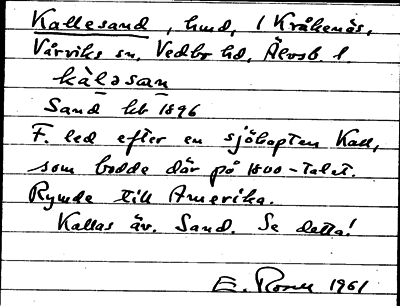 Kallesand, hmd, i Kråkenäs,
Vårviks sn, Vedbo hd, Älvsb. l.
kàləsan
Sand hb 1896
F. led efter en sjökapten Kall,
som bodde där på 1800-talet.
Rymde till Amerika.
Kallas äv. Sand. Se detta!
E. 1961